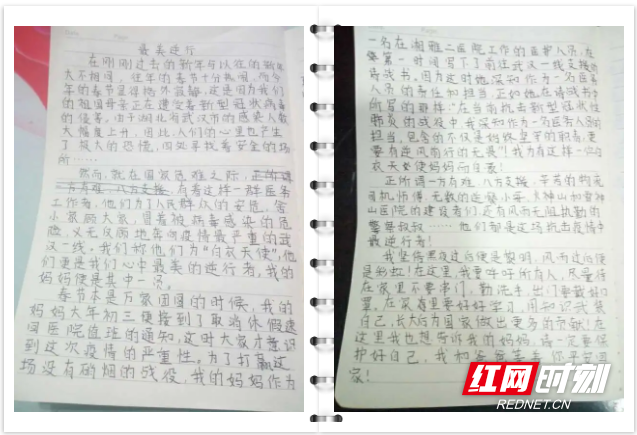 最美逆行
在刚刚过去的新年与以往的新年
大不相同，往年的春节十分热闹，而今
年的春节显得格外寂静，这是因为我们
的祖国母亲正在遭受着新型冠状病毒
的侵害，由于湖北省武汉市的感染人数
大幅度上升，因此，人们的心里也产生
了极大的恐慌，四处寻找着安全的场
所……
然而，就在国家危难之际，正所谓
一方有难，八方支援，有着这样一群医务
工作者，他们为了人民群众的安危，舍
小家顾大家，冒着被病毒感染的危
险，义无反顾地奔向疫情最严重的武
汉一线。我们称他们为“白衣天使”，他
们更是我们心中最美的逆行者，我的
妈妈便是其中一员。
春节本是万家团圆的时候，我的
妈妈大年初三便接到了取消休假速
回医院值班的通知，这时大家才意识
到这次疫情的严重性。为了打赢这
场没有硝烟的战役，我的妈妈作为
一名在湘雅二医院工作的医护人员，在
第一时间写下了前往武汉一线支援的
请战书。因为这时她深知作为一名医务
人员的责任和担当，正如她在请战书中
所写的那样：“在当前抗击新型冠状性
肺炎的战役中，我深知作为一名医务人员的
担当，包含的不仅是始终坚守的职责，更
要有逆风前行的无畏”！我为有这样一名白
衣天使妈妈而自豪！
正所谓一方有难，八方支援，辛苦的物流
司机师傅，无数的志愿小哥，火神山和雷神
山医院的建设者们，还有风雨无阻执勤的
警察叔叔……他们都是这场抗击疫情中
最逆行者！
我坚信黑夜过后便是黎明，风雨过后便
是彩虹！在这里，我要呼吁所有人，尽量待
在家里不要串门，勤洗手，出门要戴好口
罩，在家看里要好好学习，用知识武装
自己，长大后为国家做出更多的贡献！在
这里我也想告诉我的妈妈，请一定要保
护好自己，我和爸爸等你平安回
家！
红网时刻
REDNET.CN